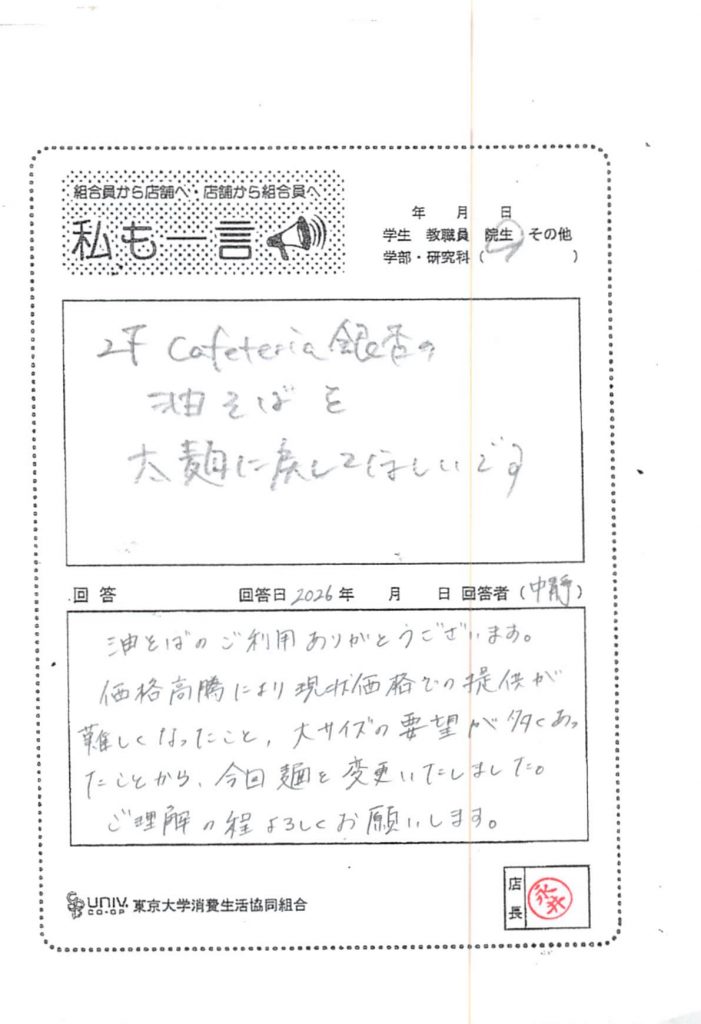 組合員から店舗へ・店舗から組合員へ
私も一言
年 月 日
学生 教職員 院生 その他
学部・研究科( )
2F Cafeteria 銀杏の
油そばを
太麺に戻してほしいです
回答 回答日 2026年 月 日 回答者(中静)
油そばのご利用ありがとうございます。
価格高騰により現状価格での提供が
難しくなったこと、大サイズの要望が多くあっ
たことから、今回麺を変更いたしました。
ご理解の程よろしくお願いします。
UNIV.
CO-OP
東京大学消費生活協同組合
店長
永井